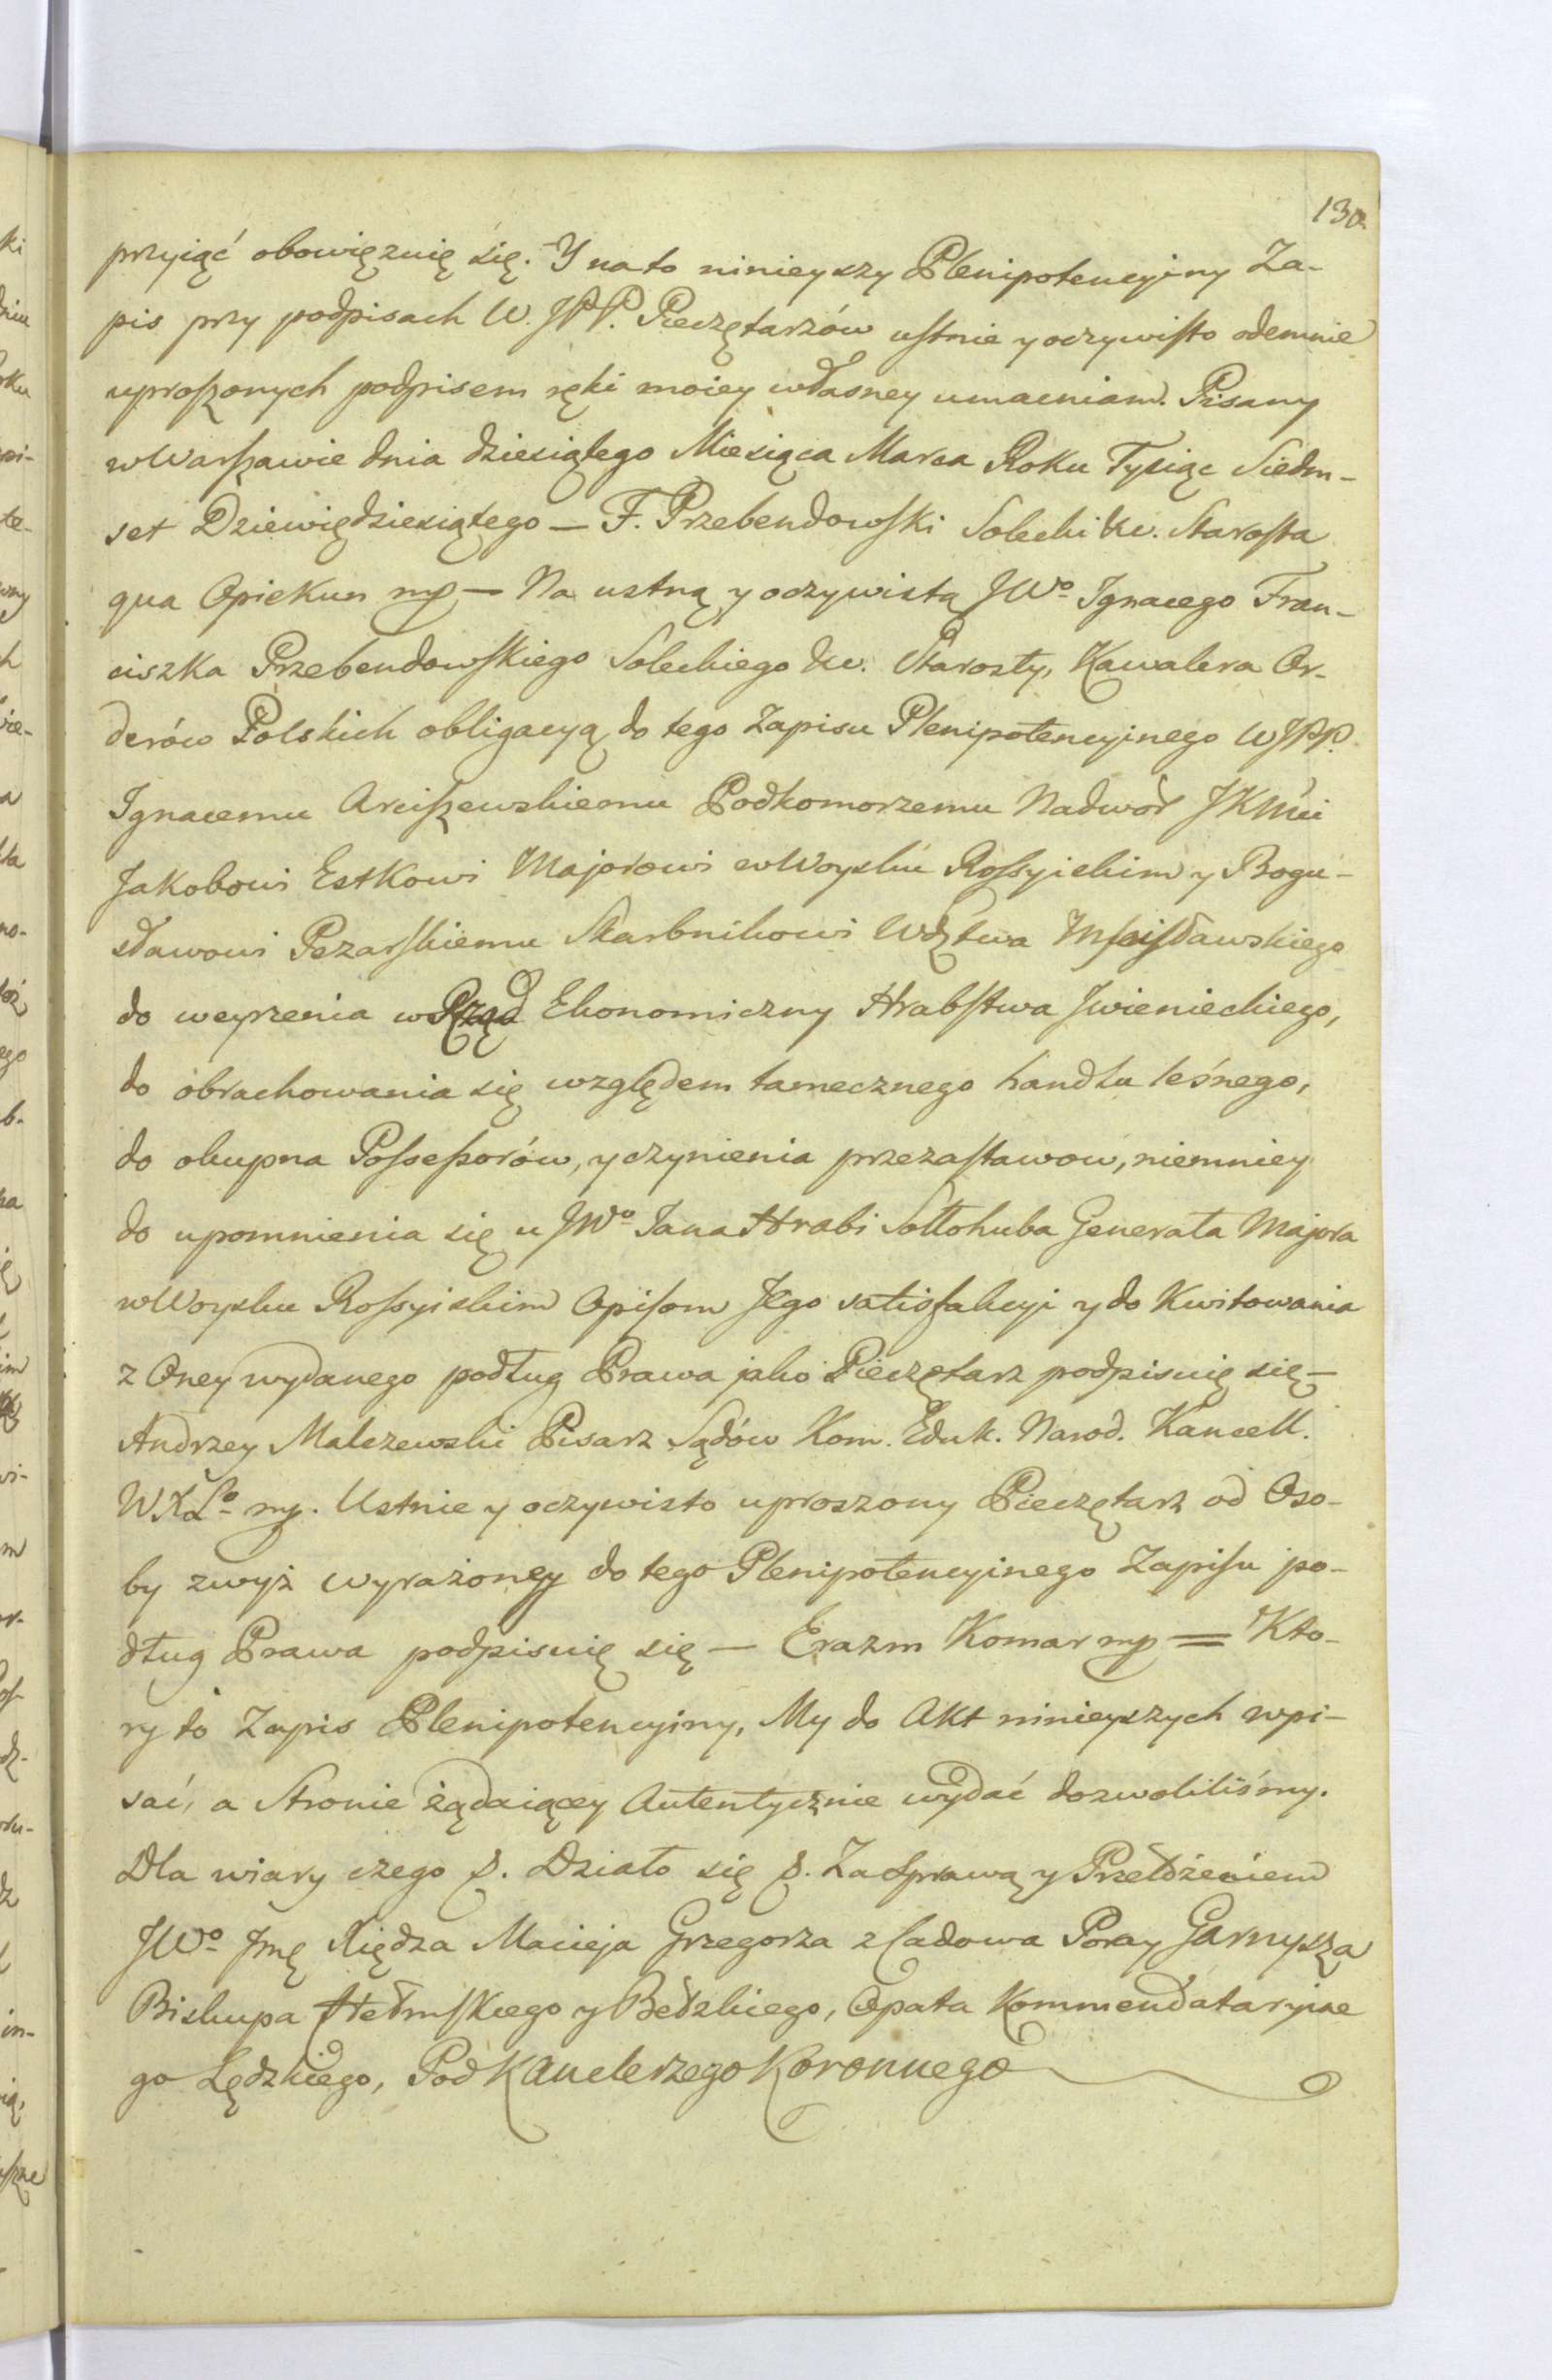 130.
przyiąć obowięzuię się. Y na to ninieyszy Plenipotencyiny Za-
pis przy podpisach W. JPP. Pieczętarzów ustnie y oczywisto odemnie
uproszonych podpisem ręki moiey własney umacniam. Pisany
w Warszawie dnia dziesiątego Miesiąca Marca Roku Tysiąc Siedm-
set Dziewiędziesiątego — F. Przebendowski Solecki &c. Starosta
qua Opiekun mp — Na ustną y oczywistą JWo Ignacego Fran-
ciszka Przebendowskiego Soleckiego &c. Starosty, Kawalera Or-
derów Polskich obligacyą do tego Zapisu Plenipotencyinego WJPP.
Ignacemu Arciszewskiemu Podkomorzemu Nadwor JKMci
Jakobowi Estkowi Majorowi w Woysku Rossyiskim y Bogu-
sławowi Pezarskiemu Skarbnikowi Wdztwa Mscisławskiego
do weyrzenia w Rząd Ekonomiczny Hrabstwa Jwienieckiego,
do obrachowania się względem tamecznego handlu leśnego,
do okupna Possessorów, y czynienia przezastawow, niemniey
do upomnienia się u JWo Jana Hrabi Sołłohuba Generała Majora
w Woysku Rossyiskim Opisom Jego satisfakcyi y do Kwitowania
z Oney wydanego podług Prawa jako Pieczętarz podpisuię się —
Andrzey Malczewski Pisarz Sądów Kom. Eduk. Narod. Kancell.
WXLo mp. Ustnie y oczywisto uproszony Pieczętarz od Oso-
by zwyż wyrażoney do tego Plenipotencyinego Zapisu po-
dług Prawa podpisuię się — Erazm Komar mp = Kto-
ry to Zapis Plenipotencyiny, My do Akt ninieyszych wpi-
sać, a Stronie żądaiącey Autentycznie wydać dozwoliliśmy.
Dla wiary czego &. Działo się &. Za Sprawą y Przełożeniem
JWo Jmę Xiędza Macieja Grzegorza z Ładowa Poray Garnysza
Biskupa Hełmskiego y Bełzkiego, Opata Kommendataryine
go Lędzkiego, Podkanclerzego Koronnego